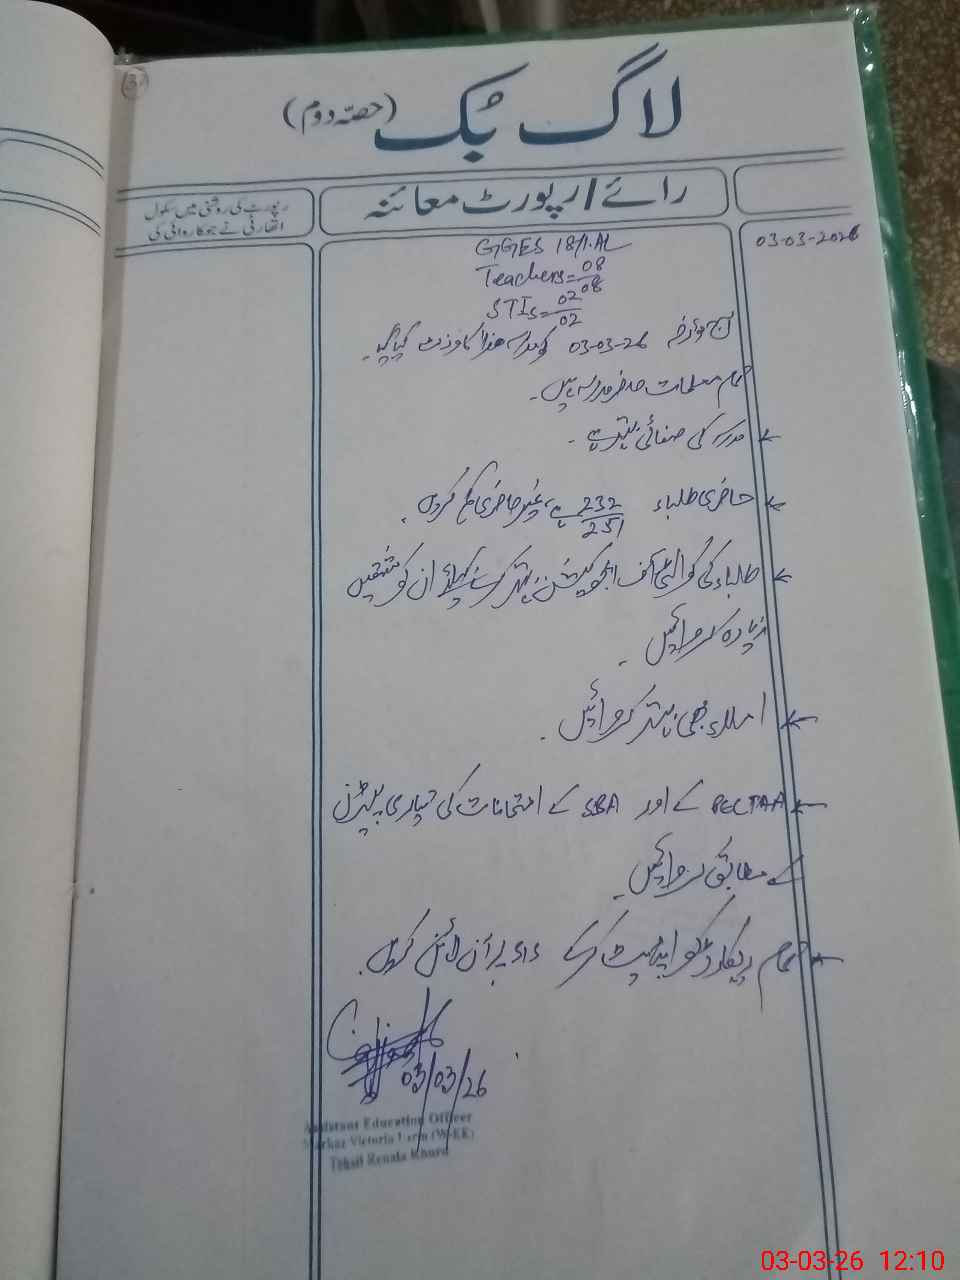 3
لاگ بُک (حصّہ دوم)
رائے / رپورٹ معائنہ
رپورٹ کی روشنی میں سکول
اتھارٹی نے جو کاروائی کی
03-03-2026
GGES 18/1.AL
Teachers = 08/08
STIs = 02/02
آج مؤرخہ 03-03-26 کو مدرسہ ھذا کا وزٹ کیا گیا۔
تمام معلمات حاضر مدرسہ ہیں۔
→ مدرسہ کی صفائی بہتر ہے۔
→ حاضری طلباء 232/251 ہے، غیر حاضری کم کریں۔
→ طلباء کی کوالٹی آف ایجوکیشن بہتر کرنے کیلئے ان کو مشقیں
زیادہ کروائیں۔
→ املاء بھی بہتر کروائیں۔
→ PECTAA کے اور SBA کے امتحانات کی تیاری پیٹرن
کے مطابق کروائیں۔
→ تمام ریکارڈ کو اپڈیٹ کرکے آن لائن کریں۔
03/03/26
Assistant Education Officer
Markaz Victoria Farm (W-EE)
Tehsil Renala Khurd
03-03-26 12:10